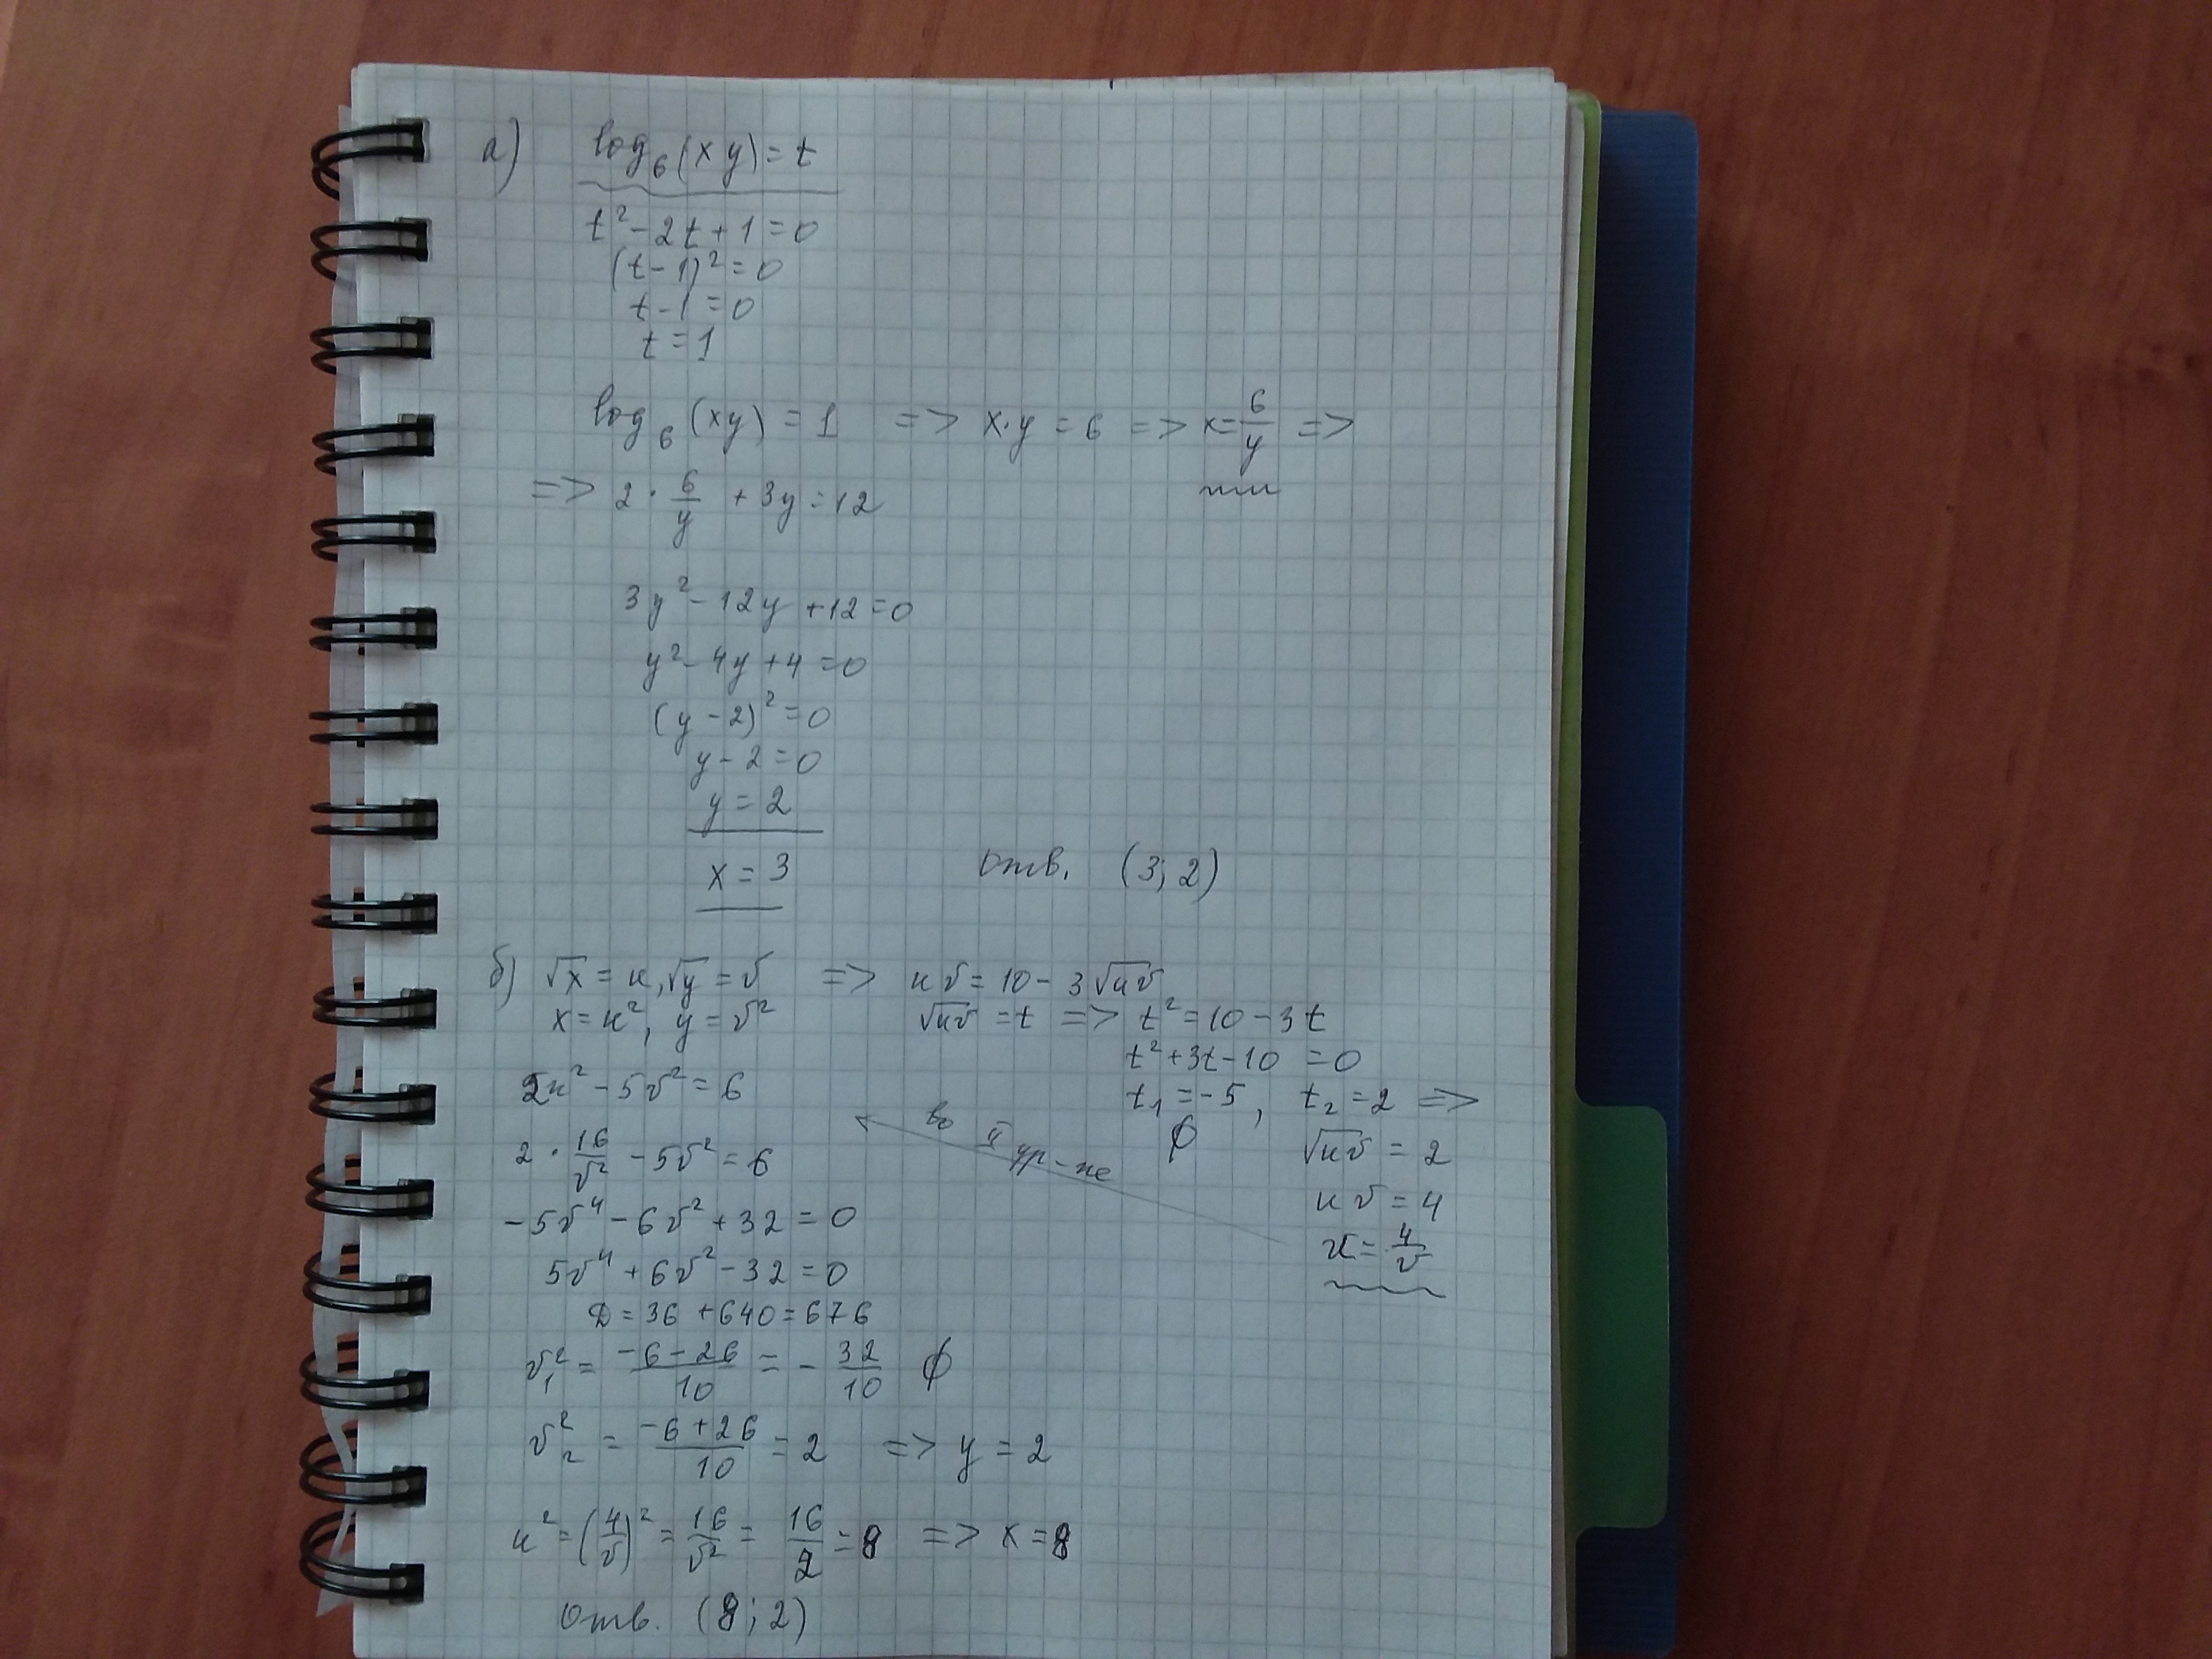 а) log₆(xy) = t
t² - 2t + 1 = 0
(t - 1)² = 0
t - 1 = 0
t = 1
log₆(xy) = 1 => x·y = 6 => x = 6/y =>
=> 2 · 6/y + 3y = 12
3y² - 12y + 12 = 0
y² - 4y + 4 = 0
(y - 2)² = 0
y - 2 = 0
y = 2
x = 3 Отв. (3; 2)
б) √x = u, √y = v => uv = 10 - 3√uv
x = u², y = v² √uv = t => t² = 10 - 3t
t² + 3t - 10 = 0
2u² - 5v² = 6 t₁ = -5, t₂ = 2 =>
во II ур-не ∅ √uv = 2
2 · 16/v² - 5v² = 6
uv = 4
-5v⁴ - 6v² + 32 = 0
u = 4/v
5v⁴ + 6v² - 32 = 0
D = 36 + 640 = 676
v₁² = (-6 - 26)/10 = - 32/10 ∅
v₂² = (-6 + 26)/10 = 2 => y = 2
u² = (4/v)² = 16/v² = 16/2 = 8 => x = 8
Отв. (8; 2)